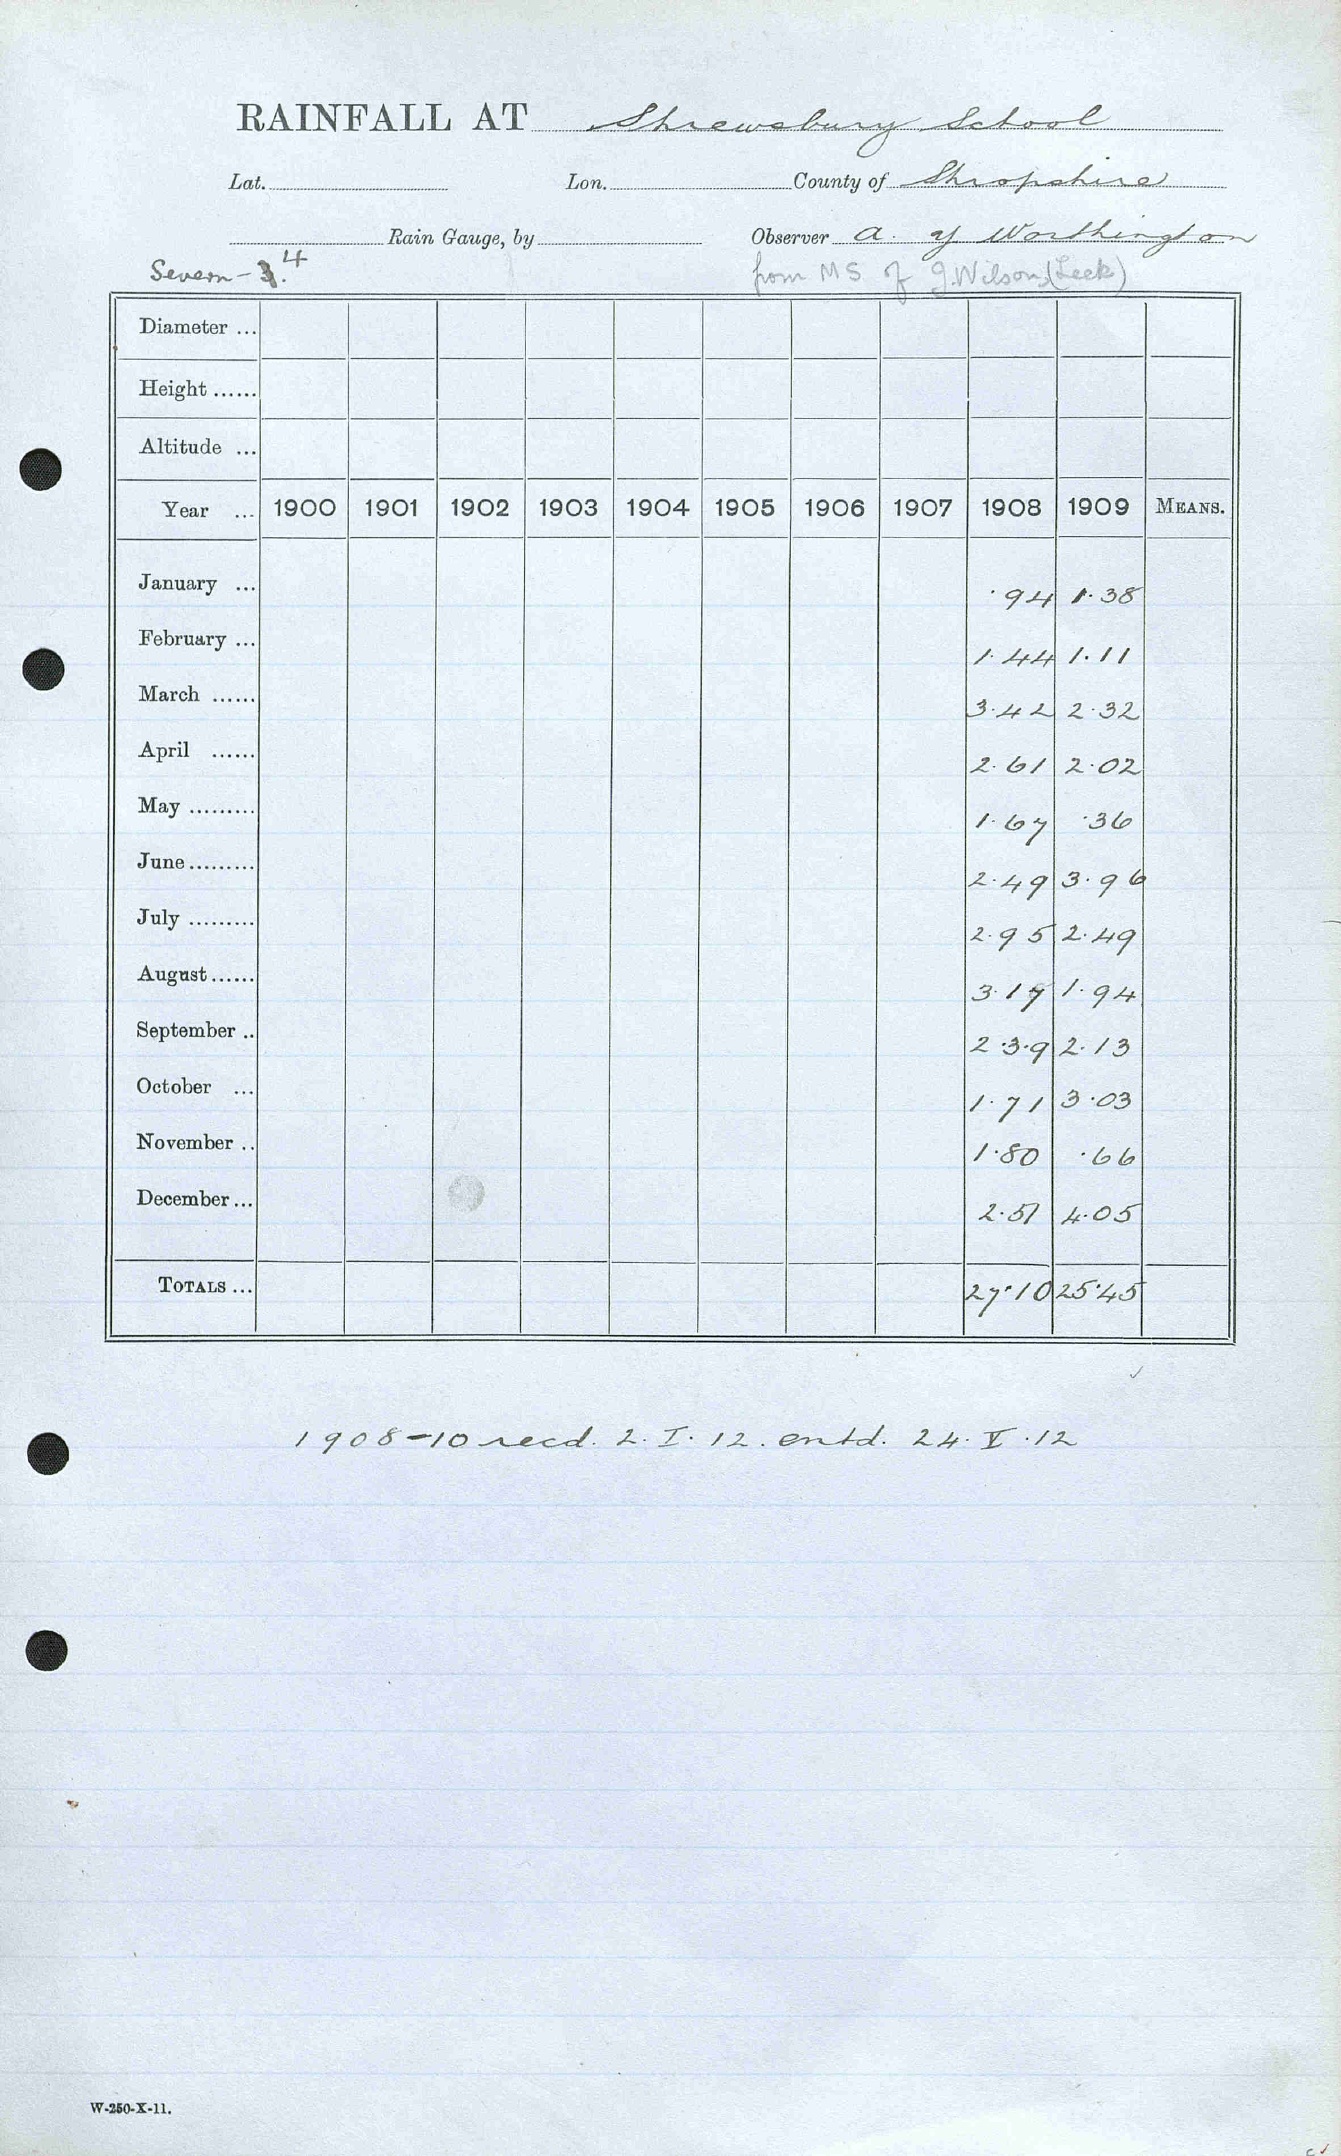 RAINFALL AT Shrewsbury School
Lat. Lon. County of Shropshire
Rain Gauge, by Observer A. Y Worthington
Severn - 3. 4 from MS of J. Wilson, (Leek)
Diameter ...
Height ......
Altitude ...
Year ... 1900 1901 1902 1903 1904 1905 1906 1907 1908 1909 MEANS.
January ... ·94 1·38
February ... 1·44 1·11
March ...... 3·42 2·32
April ...... 2·61 2·02
May ......... 1·67 ·36
June ......... 2·49 3·96
July ......... 2·95 2·49
August ...... 3·17 1·94
September .. 2·39 2·13
October ... 1·71 3·03
November .. 1·80 ·66
December ... 2·51 4·05
TOTALS ... 27·10 25·45
1908-10 recd. 2. I. 12. entd. 24. V. 12
W-250-X-11.